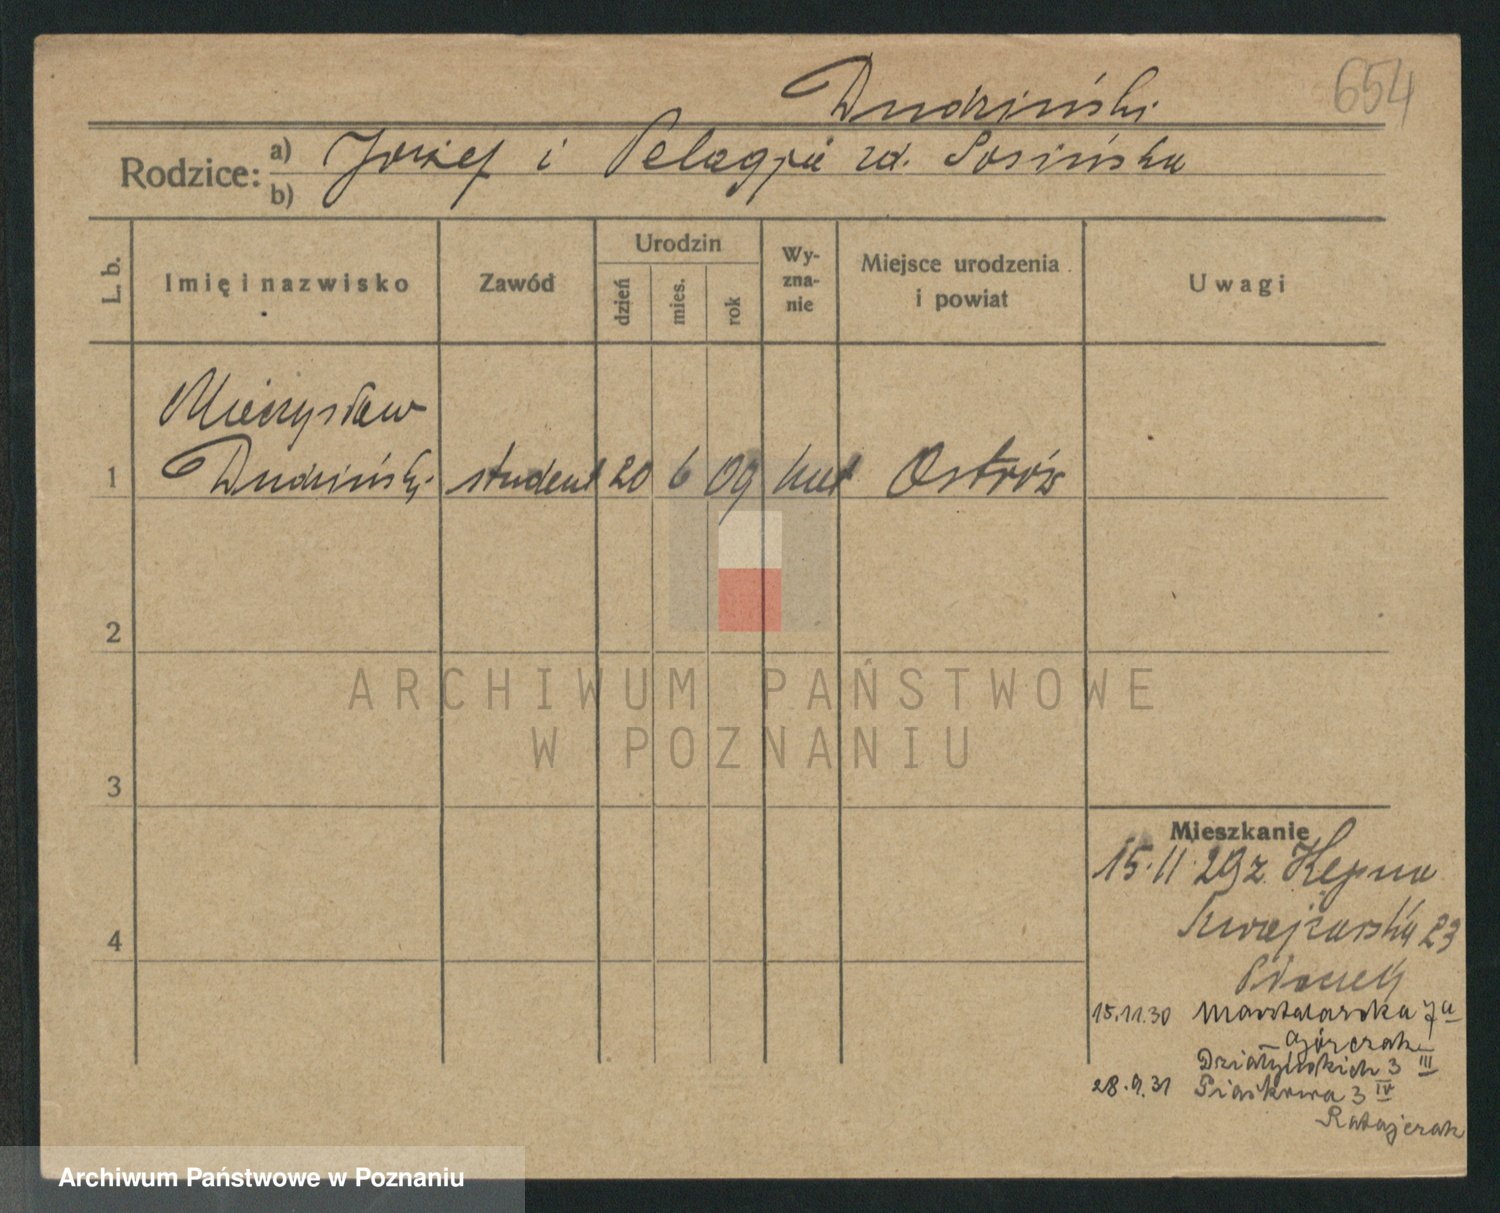 Dudziński
654
Rodzice: a) Józef i Pelagja zd. Sosińska
b)
L. b.
Imię i nazwisko
Zawód
Urodzin
dzień
mies.
rok
Wy-
zna-
nie
Miejsce urodzenia
i powiat
Uwagi
Mieczysław
1 Dudziński student 20 6 09 kat Ostrów
2
ARCHIWUM PAŃSTWOWE
W POZNANIU
3
4
Mieszkanie
15.11.29 z Kępna
Szwajcarska 23
15.11.30 Masztalarska 7a
Górczak
Działyńskich 3 III
28.9.31 Piaskowa 3 IV
Ratajczak
Archiwum Państwowe w Poznaniu